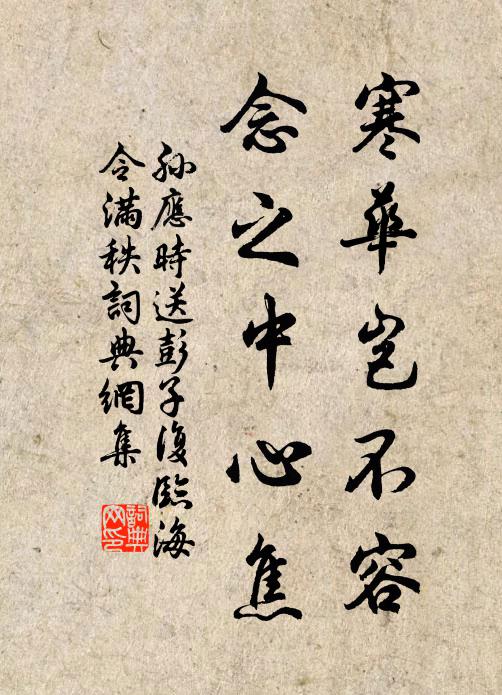 寒華豈不容
念之中心焦
孫應時送彭子復臨海
令滿秩詞典網集
詞典
網印